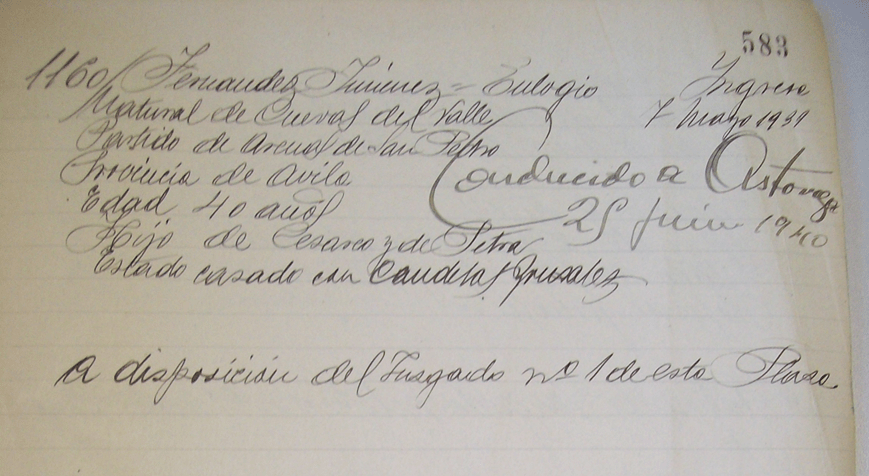 583
1160/ Fernandez Jimenez = Eulogio Ingresa
Natural de Cuevas del Valle 7 Mayo 1939
Partido de Arenas de San Pedro
Provincia de Avila Conducido a Astorga
Edad 40 años 25 Junio 1940
Hijo de Cesareo y de Petra
Estado casado con Candelas Gonzalez
A disposición del Jusgado nº 1 de esta Plaza